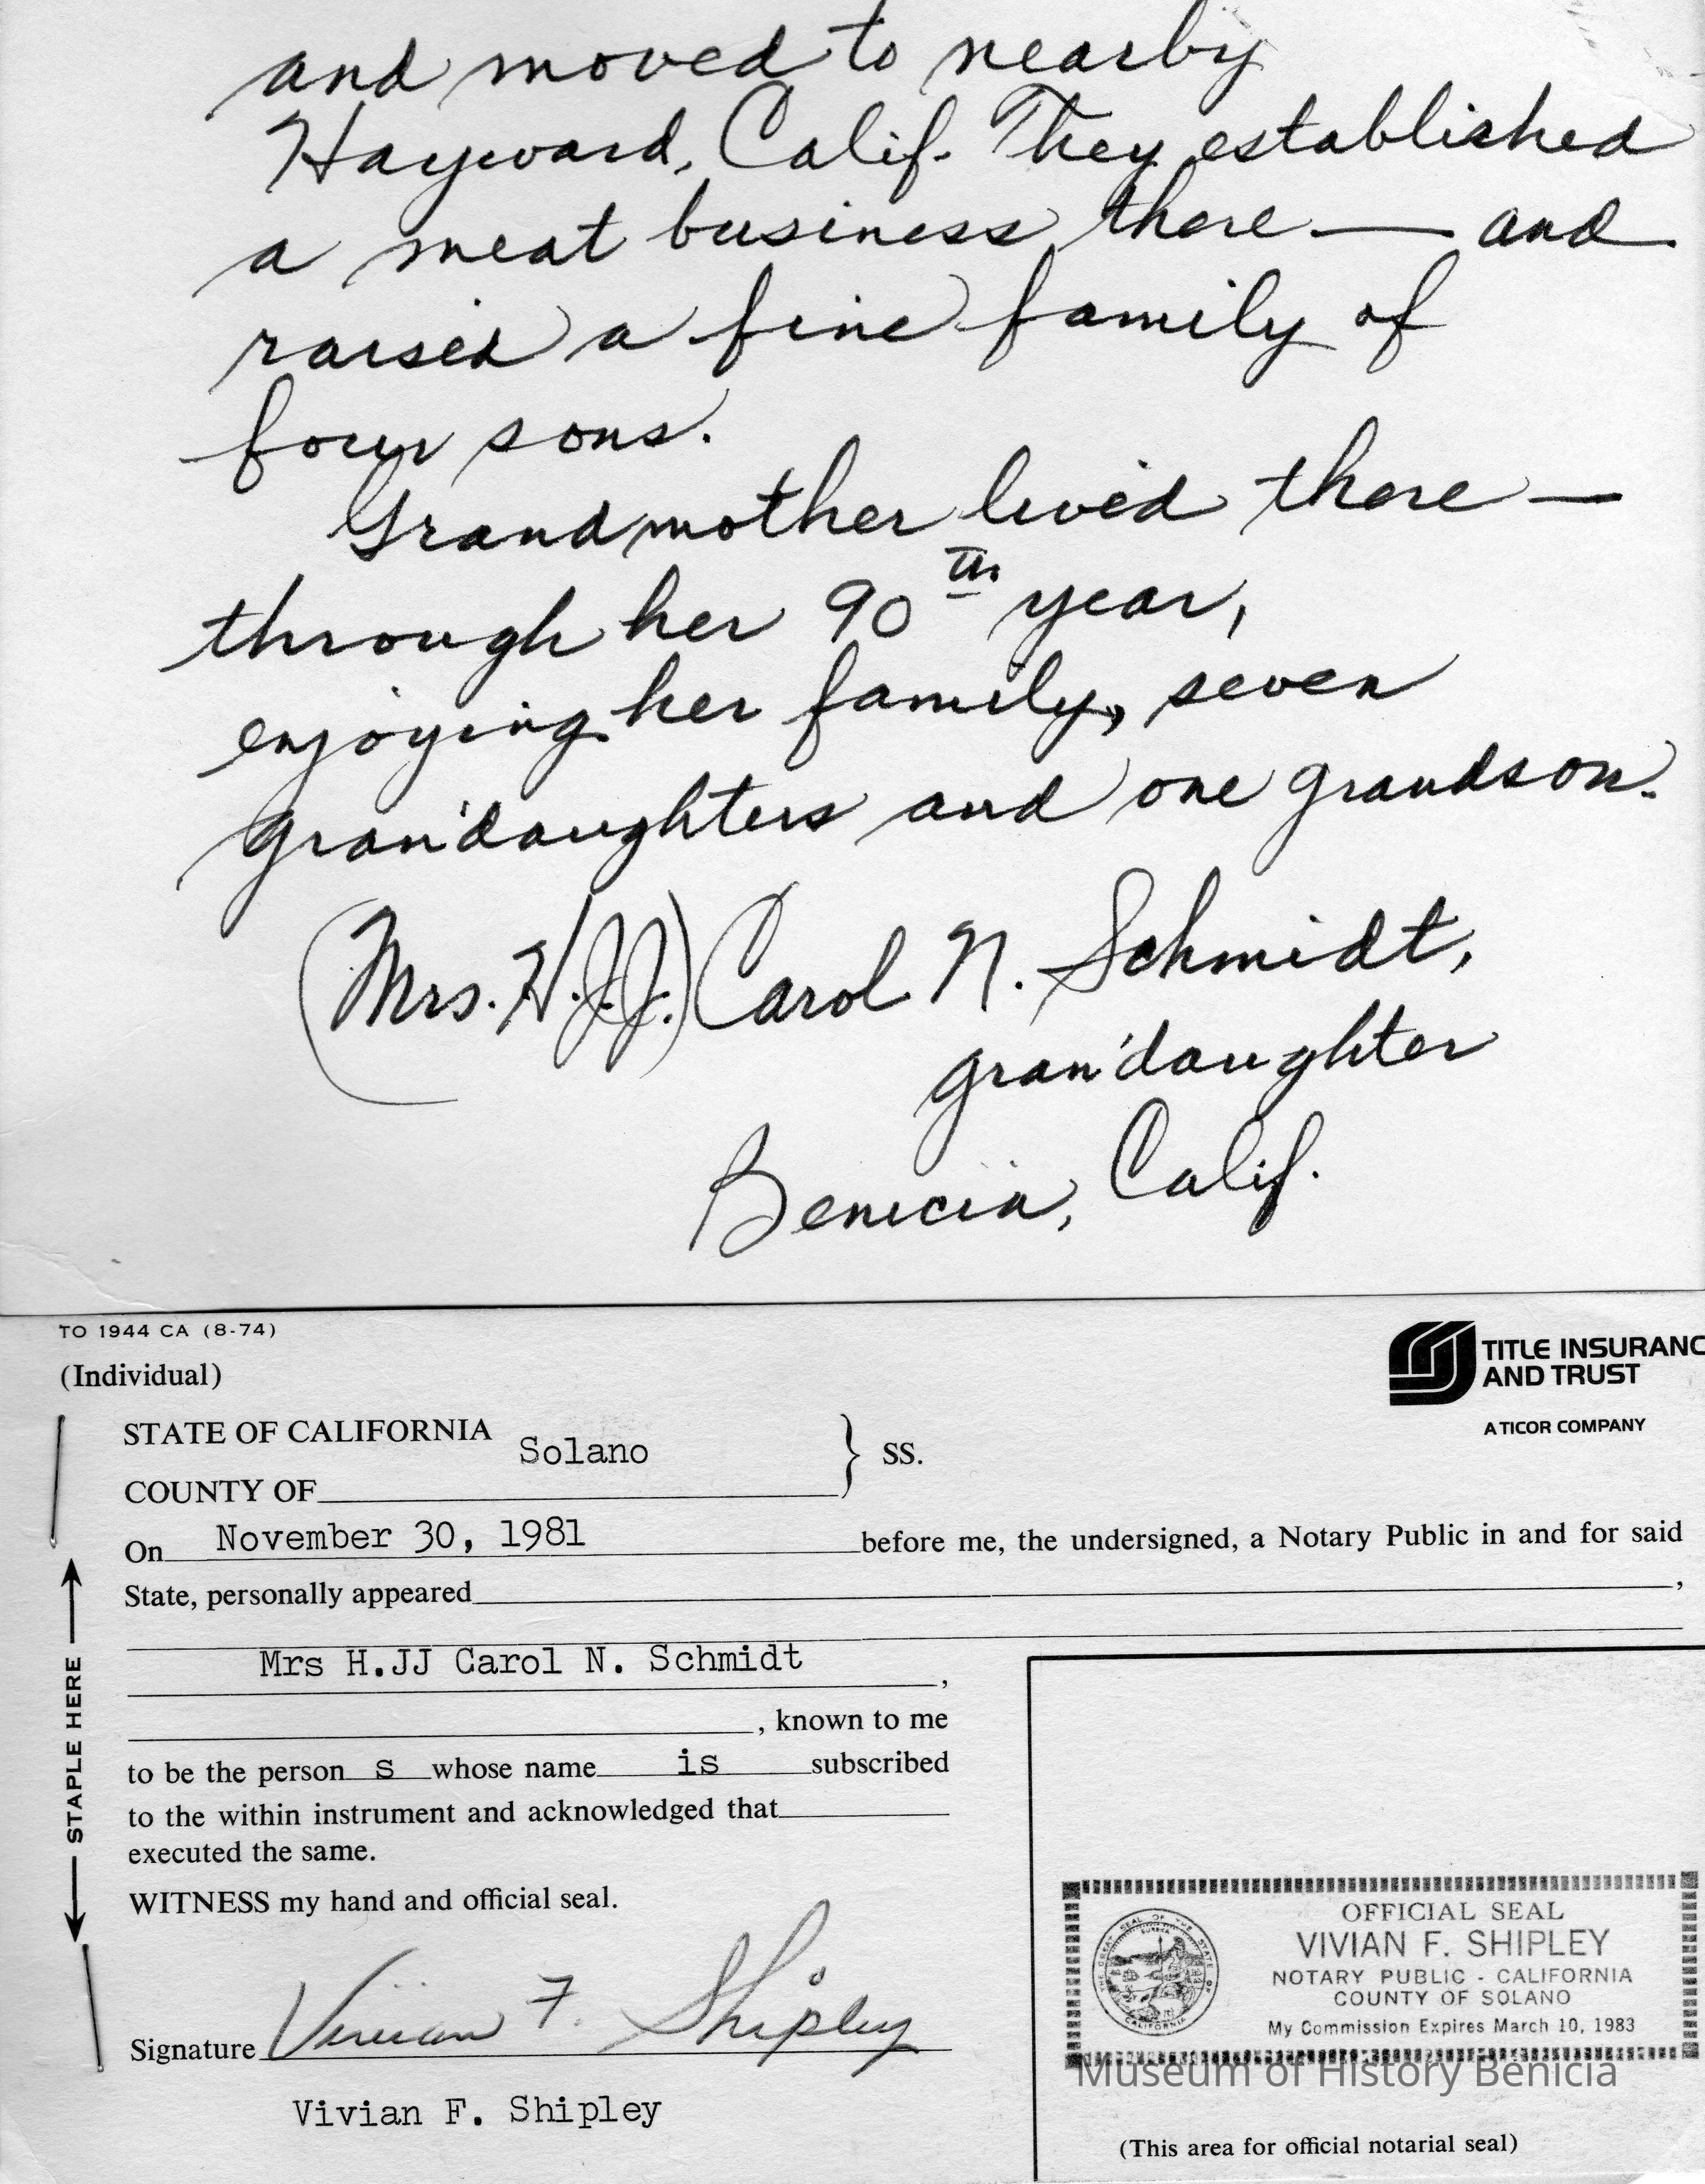 and moved to nearby
Hayward, Calif. They established
a meat business there — and
raised a fine family of
four sons.
Grandmother lived there —
through her 90th year,
enjoying her family, seven
gran'daughters and one grandson.
(Mrs. H.J.J.) Carol N. Schmidt,
gran'daughter
Benicia, Calif.
TO 1944 CA (8-74)
(Individual)
TITLE INSURANC
AND TRUST
A TICOR COMPANY
STATE OF CALIFORNIA
COUNTY OF Solano } SS.
On November 30, 1981 before me, the undersigned, a Notary Public in and for said
State, personally appeared ,
Mrs H.JJ Carol N. Schmidt ,
, known to me
to be the person s whose name is subscribed
to the within instrument and acknowledged that
executed the same.
WITNESS my hand and official seal.
Signature Vivian F. Shipley
Vivian F. Shipley
STAPLE HERE
OFFICIAL SEAL
VIVIAN F. SHIPLEY
NOTARY PUBLIC - CALIFORNIA
COUNTY OF SOLANO
My Commission Expires March 10, 1983
THE GREAT SEAL OF THE STATE OF CALIFORNIA
EUREKA
Museum of History Benicia
(This area for official notarial seal)